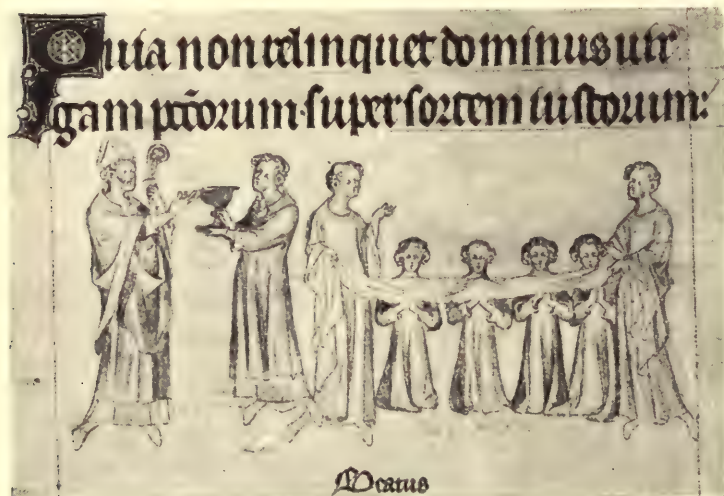 Quia non relinquet dominus uir
gam pcc̄orum super sortem iustorum:
Beatus